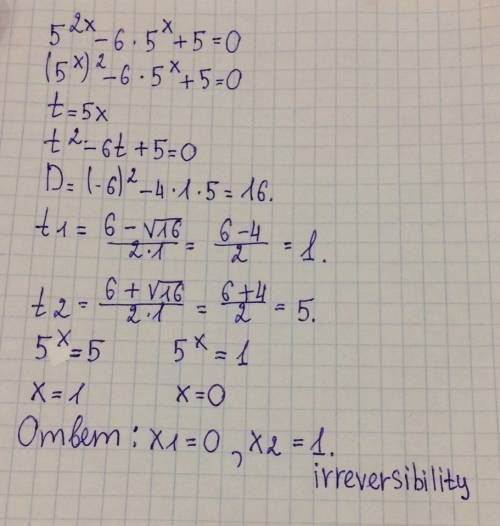 5^{2x} - 6 · 5^x + 5 = 0
(5^x)^2 - 6 · 5^x + 5 = 0
t = 5x
t^2 - 6t + 5 = 0
D = (-6)^2 - 4 · 1 · 5 = 16.
t1 = \frac{6 - √16}{2 · 1} = \frac{6 - 4}{2} = 1.
t2 = \frac{6 + √16}{2 · 1} = \frac{6 + 4}{2} = 5.
5^x = 5   5^x = 1
x = 1   x = 0
Ответ: x1 = 0, x2 = 1.
irreversibility